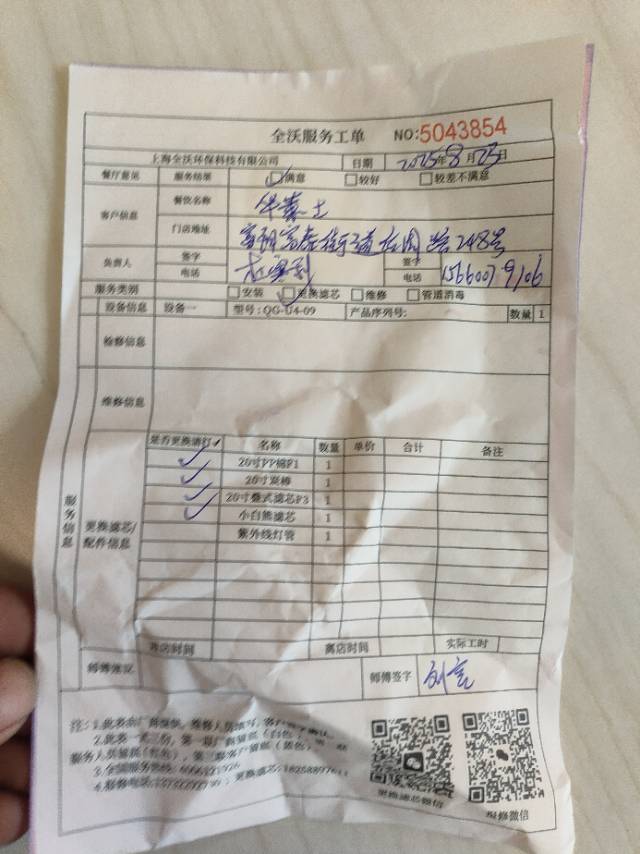 全沃服务工单 NO:5043854
上海全沃环保科技有限公司 日期 2025年8月23日
餐厅意见 服务结果 满意 较好 较差不满意
客户信息 餐饮名称 华莱士
门店地址 路248号
负责人 签字 签字
电话 电话
服务类别 安装 更换滤芯 维修 管道消毒
服务信息
设备信息 设备一 型号:QG-U4-09 产品序列号: 数量 1
检修信息
维修信息
更换滤芯/配件信息
是否更换请打✓ 名称 数量 单价 合计 备注
✓ 20寸PP棉P1 1
✓ 20寸炭棒 1
✓ 20寸叠式滤芯P3 1
✓ 小白熊滤芯 1
紫外线灯管 1
到店时间 离店时间 实际工时
师傅建议 师傅签字
注:1.此表由厂商提供,维修人员填写,客户
2.此表一式三份,第一联厂商留底(白色),
服务人员留底(红色),第三联客户留底(蓝色)。
3.全国服务热线:
4.报修电话: 更换滤芯:
更换滤芯微信
报修微信